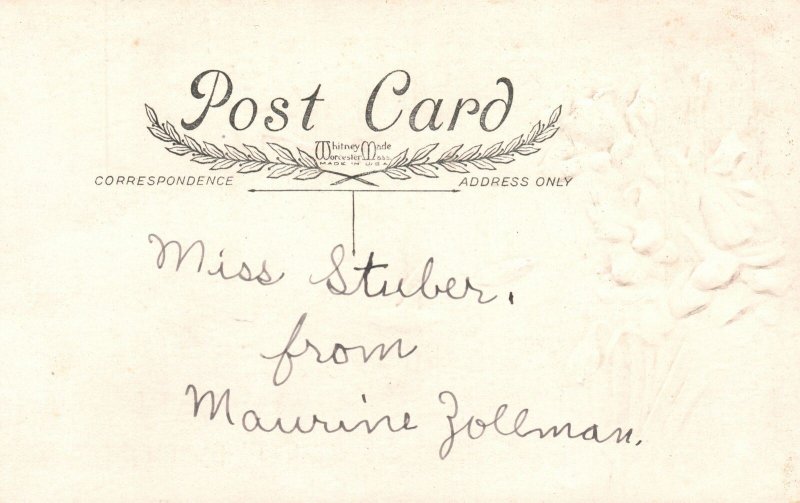 Post Card
Whitney Made
Worcester Mass.
MADE IN U.S.A.
CORRESPONDENCE ADDRESS ONLY
Miss Stuber.
from
Maurine Zollman.